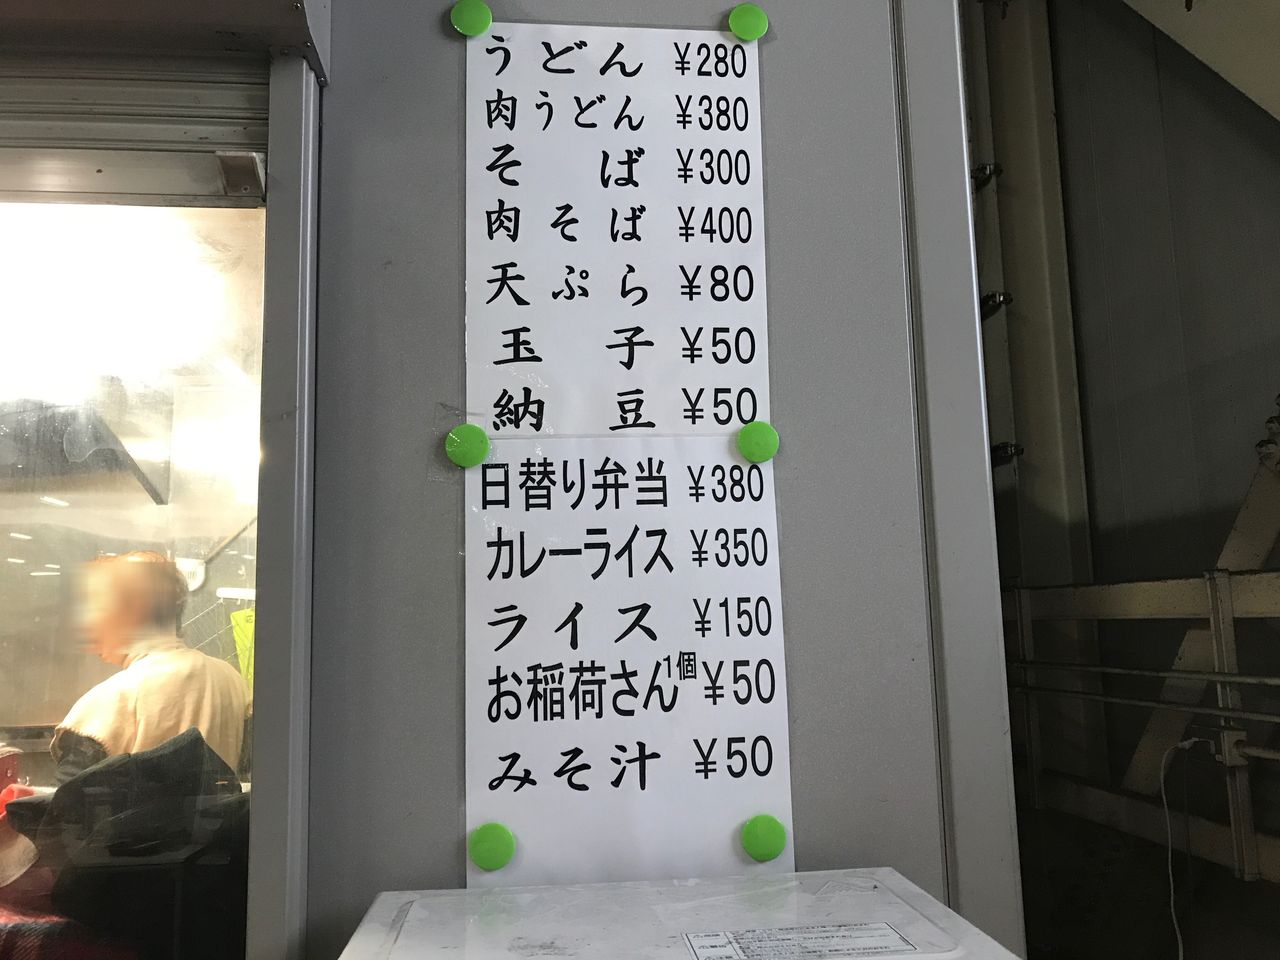 うどん ¥280
肉うどん ¥380
そば ¥300
肉そば ¥400
天ぷら ¥80
玉子 ¥50
納豆 ¥50
日替り弁当 ¥380
カレーライス ¥350
ライス ¥150
お稲荷さん1個 ¥50
みそ汁 ¥50